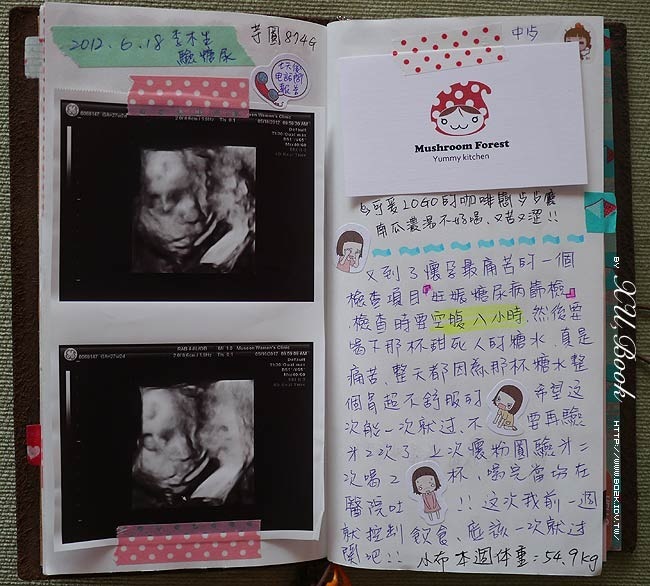 2012.6.18 李木生
驗糖尿
芋圓 874G
七天後
電話問
報告
GE
Default
GE
Default
中峙
Mushroom Forest
Yummy kitchen
LOGO的咖啡
南瓜濃湯不好喝、又苦又澀!!
又到了懷孕最痛苦的一個
檢查項目『妊娠糖尿病篩檢』
檢查時要空腹八小時,然後要
喝下那杯甜死人的糖水,真是
痛苦、整天都因為那杯糖水整
個胃超不舒服的 希望這
次能一次就过、不要再驗
才2次了、上次懷粉圓驗才二
次喝2杯、喝完當场在
醫院吐!!這次我前一週
就控制飲食、應該一次就过
關吧!! 小布本週体重=54.9kg
BY XU_Book
HTTP://WWW.BO2K.IDV.TW/